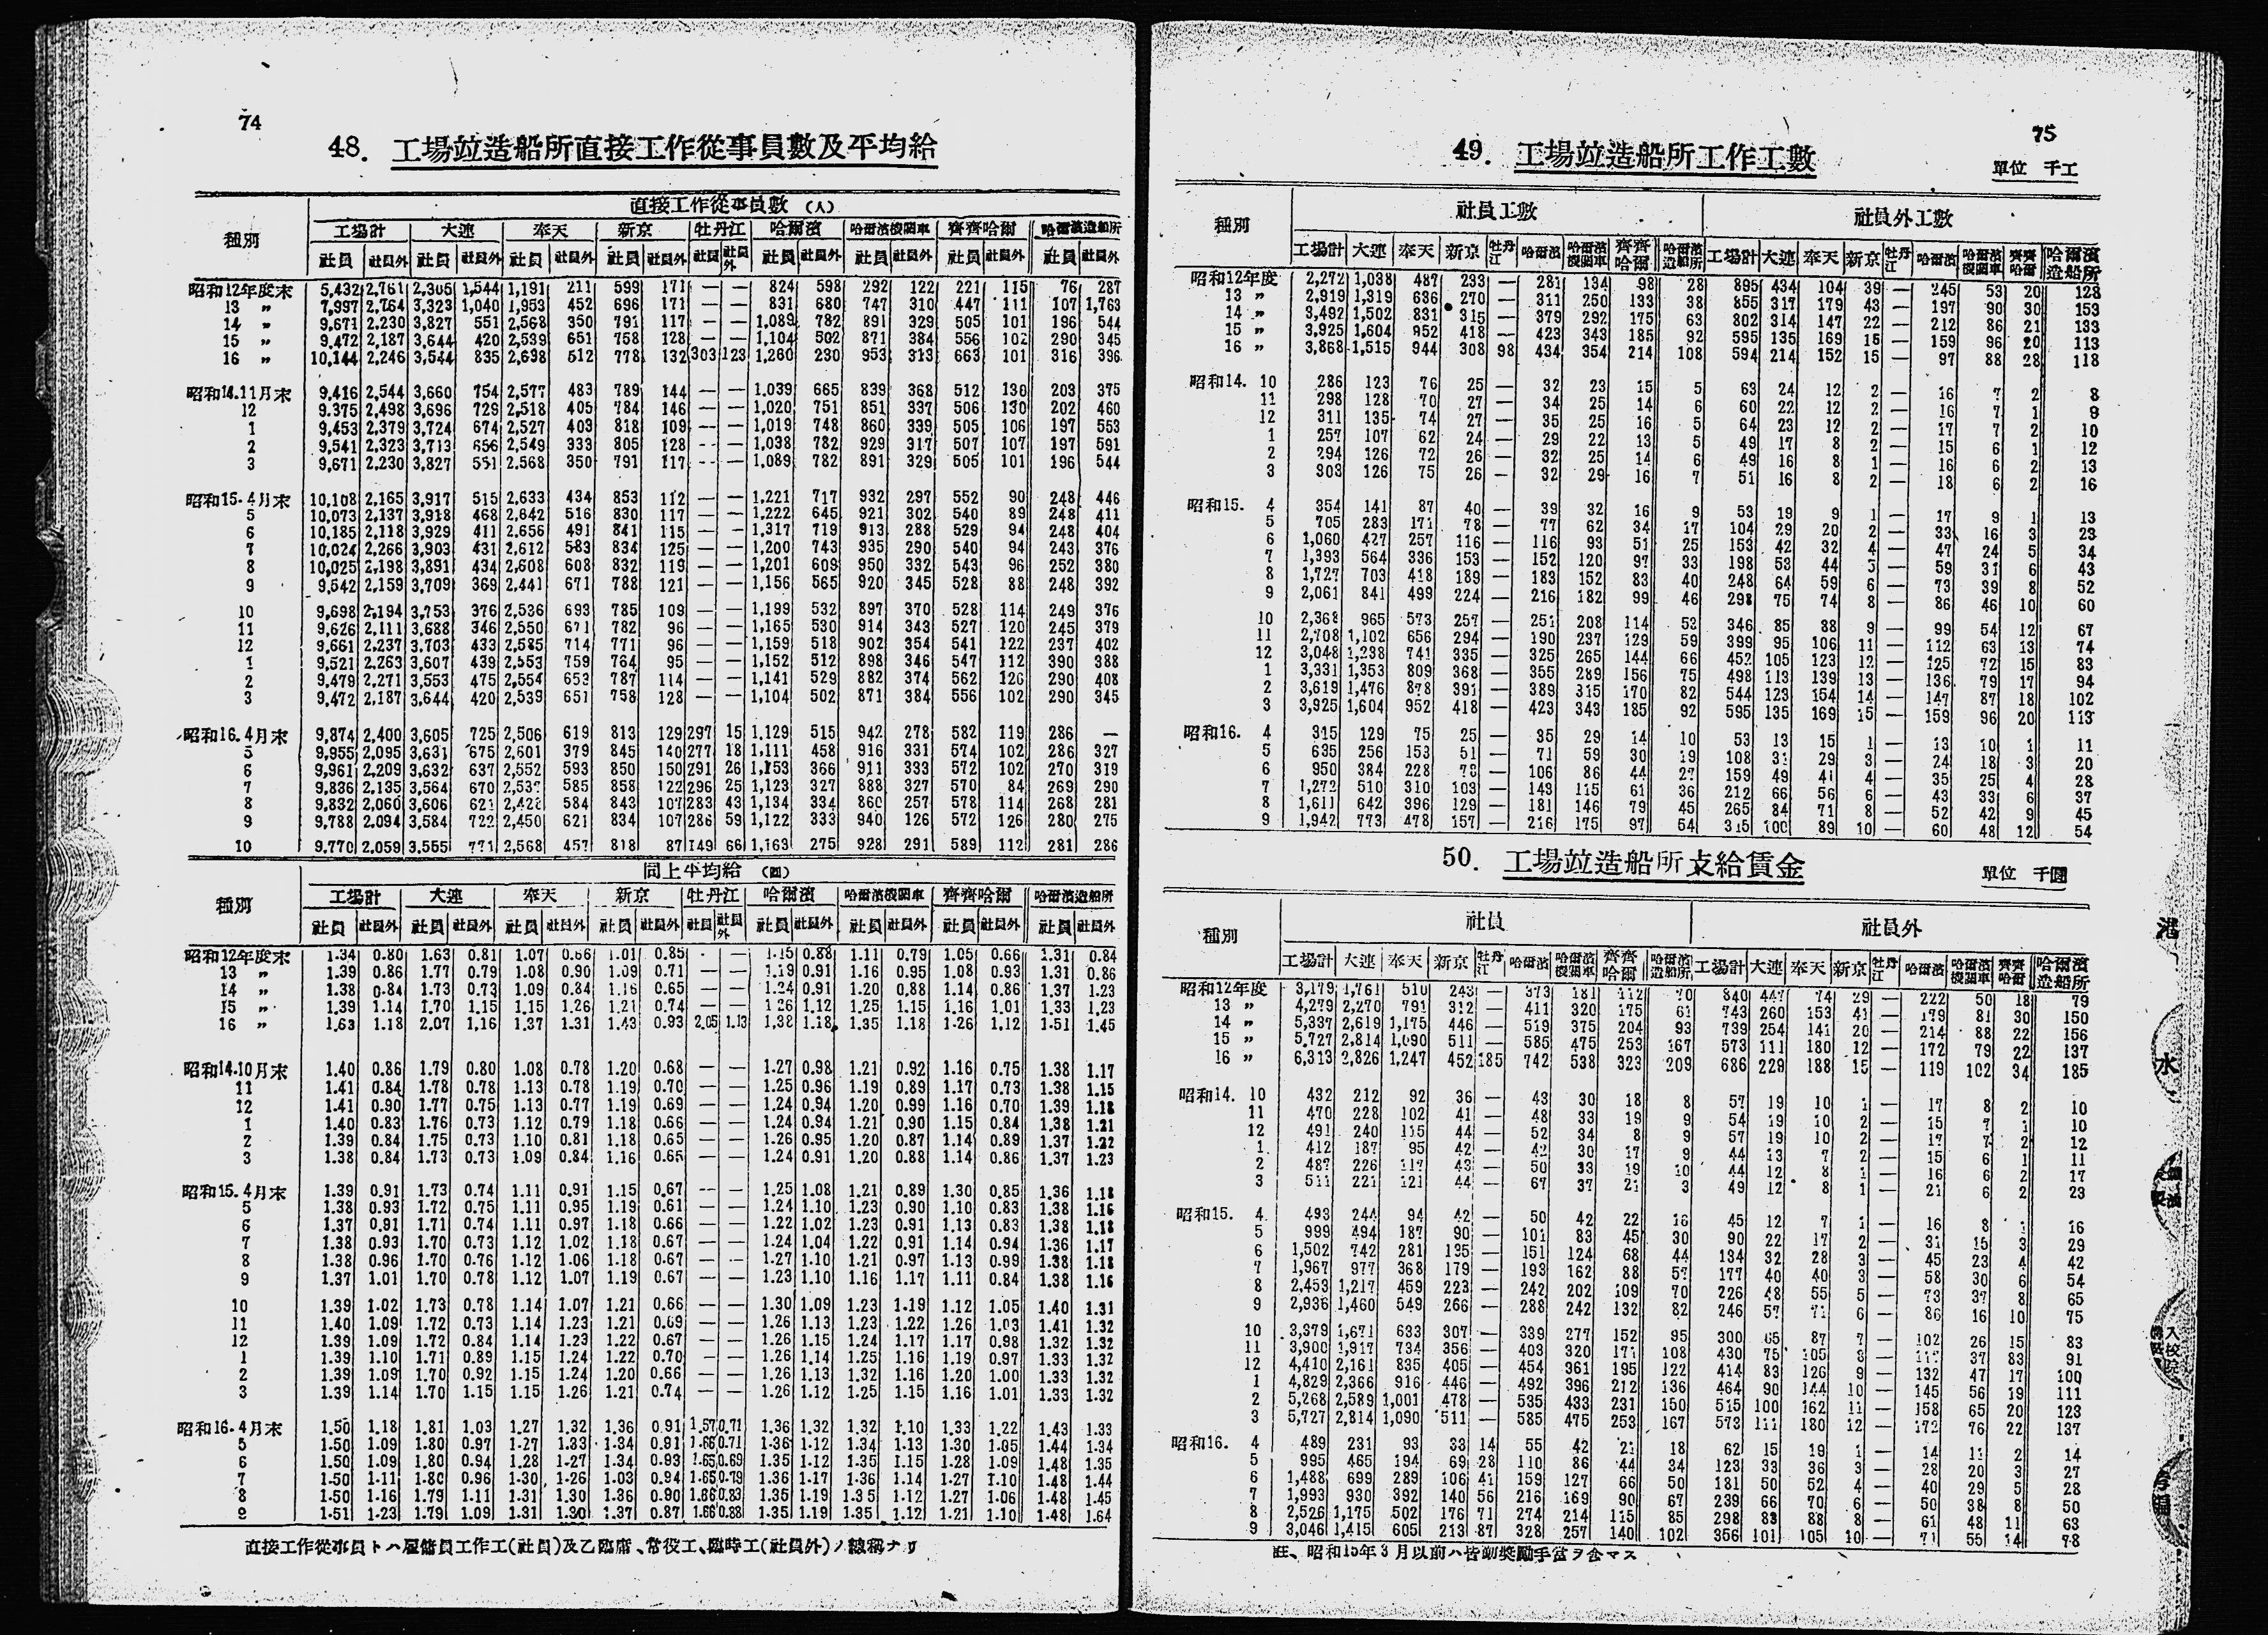 74
48. 工場竝造船所直接工作從事員數及平均給
直接工作從事員數 (人)
種別 工場計 大連 奉天 新京 牡丹江 哈爾濱 哈爾濱機關車 齊齊哈爾 哈爾濱造船所
社員 社員外 社員 社員外 社員 社員外 社員 社員外 社員 社員外 社員 社員外 社員 社員外 社員 社員外 社員 社員外
昭和12年度末 5,432 2,761 2,305 1,544 1,191 211 599 171 — — 824 598 292 122 221 115 76 287
13 〃 7,997 2,764 3,323 1,040 1,953 452 696 171 — — 831 680 747 310 447 111 107 1,763
14 〃 9,671 2,230 3,827 551 2,568 350 791 117 — — 1,089 782 891 329 505 101 196 544
15 〃 9,472 2,187 3,644 420 2,539 651 758 128 — — 1,104 502 871 384 556 102 290 345
16 〃 10,144 2,246 3,544 835 2,698 512 778 132 303 123 1,260 230 953 313 663 101 316 396
昭和14.11月末 9,416 2,544 3,660 754 2,577 483 789 144 — — 1,039 665 839 368 512 130 203 375
12 9,375 2,498 3,696 729 2,518 405 784 146 — — 1,020 751 851 337 506 130 202 460
1 9,453 2,379 3,724 674 2,527 403 818 109 — — 1,019 748 860 339 505 106 197 553
2 9,541 2,323 3,713 656 2,549 333 805 128 — — 1,038 782 929 317 507 107 197 591
3 9,671 2,230 3,827 551 2,568 350 791 117 — — 1,089 782 891 329 505 101 196 544
昭和15.4月末 10,108 2,165 3,917 515 2,633 434 853 112 — — 1,221 717 932 297 552 90 248 446
5 10,073 2,137 3,918 468 2,642 516 830 117 — — 1,222 645 921 302 540 89 248 411
6 10,185 2,118 3,929 411 2,656 491 841 115 — — 1,317 719 913 288 529 94 248 404
7 10,024 2,266 3,903 431 2,612 583 834 125 — — 1,200 743 935 290 540 94 243 376
8 10,025 2,198 3,891 434 2,608 608 832 119 — — 1,201 609 950 332 543 96 252 380
9 9,542 2,159 3,709 369 2,441 671 788 121 — — 1,156 565 920 345 528 88 248 392
10 9,698 2,194 3,753 376 2,536 693 785 109 — — 1,199 532 897 370 528 114 249 376
11 9,626 2,111 3,688 346 2,550 671 782 96 — — 1,165 530 914 343 527 120 245 379
12 9,661 2,237 3,703 433 2,585 714 771 96 — — 1,159 518 902 354 541 122 237 402
1 9,521 2,263 3,607 439 2,553 759 764 95 — — 1,152 512 898 346 547 112 390 388
2 9,479 2,271 3,553 475 2,554 653 787 114 — — 1,141 529 882 374 562 126 290 408
3 9,472 2,187 3,644 420 2,539 651 758 128 — — 1,104 502 871 384 556 102 290 345
昭和16.4月末 9,874 2,400 3,605 725 2,506 619 813 129 297 15 1,129 515 942 278 582 119 286 —
5 9,955 2,095 3,631 675 2,601 379 845 140 277 18 1,111 458 916 331 574 102 286 327
6 9,961 2,209 3,632 637 2,552 593 850 150 291 26 1,153 366 911 333 572 102 270 319
7 9,836 2,135 3,564 670 585 858 122 296 25 1,123 327 888 327 570 84 269 290
8 9,832 2,060 3,606 621 2,428 584 843 107 283 43 1,134 334 860 257 578 114 268 281
9 9,788 2,094 3,584 722 2,450 621 834 107 286 59 1,122 333 940 126 572 126 280 275
10 9,770 2,059 3,555 771 2,568 457 818 87 149 66 1,163 275 928 291 589 112 281 286
同上平均給 (圓)
種別 工場計 大連 奉天 新京 牡丹江 哈爾濱 哈爾濱機關車 齊齊哈爾 哈爾濱造船所
社員 社員外 社員 社員外 社員 社員外 社員 社員外 社員 社員外 社員 社員外 社員 社員外 社員 社員外 社員 社員外
昭和12年度末 1.34 0.80 1.63 0.81 1.07 0.66 1.01 0.85 - — 1.15 0.88 1.11 0.79 1.05 0.66 1.31 0.84
13 〃 1.39 0.86 1.77 0.79 1.08 0.90 1.09 0.71 — — 1.19 0.91 1.16 0.95 1.08 0.93 1.31 0.86
14 〃 1.38 0.84 1.73 0.73 1.09 0.84 1.16 0.65 — — 1.24 0.91 1.20 0.88 1.14 0.86 1.37 1.23
15 〃 1.39 1.14 1.70 1.15 1.15 1.26 1.21 0.74 — — 1.26 1.12 1.25 1.15 1.16 1.01 1.33 1.32
16 〃 1.63 1.18 2.07 1.16 1.37 1.31 1.43 0.93 2.05 1.13 1.38 1.18 1.35 1.18 1.26 1.12 1.51 1.45
昭和14.10月末 1.40 0.86 1.79 0.80 1.08 0.78 1.20 0.68 — — 1.27 0.98 1.21 0.92 1.16 0.75 1.38 1.17
11 1.41 0.84 1.78 0.78 1.13 0.78 1.19 0.70 — — 1.25 0.96 1.19 0.89 1.17 0.73 1.38 1.15
12 1.41 0.90 1.77 0.75 1.13 0.77 1.19 0.69 — — 1.24 0.94 1.20 0.99 1.16 0.70 1.39 1.18
1 1.40 0.83 1.76 0.73 1.12 0.79 1.18 0.66 — — 1.24 0.94 1.21 0.90 1.15 0.84 1.38 1.21
2 1.39 0.84 1.75 0.73 1.10 0.81 1.18 0.65 — — 1.26 0.95 1.20 0.87 1.14 0.89 1.37 1.22
3 1.38 0.84 1.73 0.73 1.09 0.84 1.16 0.65 — — 1.24 0.91 1.20 0.88 1.14 0.86 1.37 1.23
昭和15.4月末 1.39 0.91 1.73 0.74 1.11 0.91 1.15 0.67 — — 1.25 1.08 1.21 0.89 1.30 0.85 1.36 1.18
5 1.38 0.93 1.72 0.75 1.11 0.95 1.19 0.61 — — 1.24 1.10 1.23 0.90 1.10 0.83 1.38 1.16
6 1.37 0.91 1.71 0.74 1.11 0.97 1.18 0.66 — — 1.22 1.02 1.23 0.91 1.13 0.83 1.38 1.18
7 1.38 0.93 1.70 0.73 1.12 1.02 1.18 0.67 — — 1.24 1.04 1.22 0.91 1.14 0.94 1.36 1.17
8 1.38 0.96 1.70 0.76 1.12 1.06 1.18 0.67 — — 1.27 1.10 1.21 0.97 1.13 0.99 1.38 1.18
9 1.37 1.01 1.70 0.78 1.12 1.07 1.19 0.67 — — 1.23 1.10 1.16 1.17 1.11 0.84 1.38 1.16
10 1.39 1.02 1.73 0.78 1.14 1.07 1.21 0.66 — — 1.30 1.09 1.23 1.19 1.12 1.05 1.40 1.31
11 1.40 1.09 1.72 0.73 1.14 1.23 1.21 0.69 — — 1.26 1.13 1.23 1.22 1.26 1.03 1.41 1.32
12 1.39 1.09 1.72 0.84 1.14 1.23 1.22 0.67 — — 1.26 1.15 1.24 1.17 1.17 0.98 1.32 1.32
1 1.39 1.10 1.71 0.89 1.15 1.24 1.22 0.70 — — 1.26 1.14 1.25 1.16 1.19 0.97 1.33 1.32
2 1.39 1.09 1.70 0.92 1.15 1.24 1.20 0.66 — — 1.26 1.13 1.32 1.16 1.20 1.00 1.33 1.32
3 1.39 1.14 1.70 1.15 1.15 1.26 1.21 0.74 — — 1.26 1.12 1.25 1.15 1.16 1.01 1.33 1.32
昭和16.4月末 1.50 1.18 1.81 1.03 1.27 1.32 1.36 0.91 1.57 0.71 1.36 1.32 1.32 1.10 1.33 1.22 1.43 1.33
5 1.50 1.09 1.80 0.97 1.27 1.33 1.34 0.91 1.66 0.71 1.36 1.12 1.34 1.13 1.30 1.05 1.44 1.34
6 1.50 1.09 1.80 0.94 1.28 1.27 1.34 0.93 1.65 0.69 1.35 1.12 1.35 1.15 1.28 1.09 1.48 1.35
7 1.50 1.11 1.80 0.96 1.30 1.26 1.03 0.94 1.65 0.79 1.36 1.17 1.36 1.14 1.27 1.10 1.48 1.44
8 1.50 1.16 1.79 1.11 1.31 1.30 1.36 0.90 1.66 0.83 1.35 1.19 1.35 1.12 1.27 1.06 1.48 1.45
9 1.51 1.23 1.79 1.09 1.31 1.30 1.37 0.87 1.66 0.88 1.35 1.19 1.35 1.12 1.21 1.10 1.48 1.64
直接工作從事員トハ雇傭員工作工(社員)及乙臨席、常役工、臨時工(社員外)ノ總稱ナリ
75
49. 工場竝造船所工作工數
單位 千工
種別 社員工數 社員外工數
工場計 大連 奉天 新京 牡丹江 哈爾濱 哈爾濱機關車 齊齊哈爾 哈爾濱造船所 工場計 大連 奉天 新京 牡丹江 哈爾濱 哈爾濱機關車 齊齊哈爾 哈爾濱造船所
昭和12年度 2,272 1,038 487 233 — 281 134 98 28 895 434 104 39 — 245 53 20 128
13 〃 2,919 1,319 636 270 — 311 250 133 38 855 317 179 43 — 197 90 30 153
14 〃 3,492 1,502 831 315 — 379 292 175 63 802 314 147 22 — 212 86 21 133
15 〃 3,925 1,604 952 418 — 423 343 185 92 595 135 169 15 — 159 96 20 113
16 〃 3,868 1,515 944 308 98 434 354 214 108 594 214 152 15 — 97 88 28 118
昭和14. 10 286 123 76 25 — 32 23 15 5 63 24 12 2 — 16 7 2 8
11 298 128 70 27 — 34 25 14 6 60 22 12 2 — 16 7 1 9
12 311 135 74 27 — 35 25 16 5 64 23 12 2 — 17 7 2 10
1 257 107 62 24 — 29 22 13 5 49 17 8 2 — 15 6 1 12
2 294 126 72 26 — 32 25 14 6 49 16 8 1 — 16 6 2 13
3 303 126 75 26 — 32 29 16 7 51 16 8 2 — 18 6 2 16
昭和15. 4 354 141 87 40 — 39 32 16 9 53 19 9 1 — 17 9 1 13
5 705 283 171 78 — 77 62 34 17 104 29 20 2 — 33 16 3 23
6 1,060 427 257 116 — 116 93 51 25 153 42 32 4 — 47 24 5 34
7 1,393 564 336 153 — 152 120 97 33 198 53 44 5 — 59 31 6 43
8 1,727 703 418 189 — 183 152 83 40 248 64 59 6 — 73 39 8 52
9 2,061 841 499 224 — 216 182 99 46 298 75 74 8 — 86 46 10 60
10 2,368 965 573 257 — 251 208 114 52 346 85 88 9 — 99 54 12 67
11 2,708 1,102 656 294 — 190 237 129 59 399 95 106 11 — 112 63 13 74
12 3,048 1,238 741 335 — 325 265 144 66 452 105 123 12 — 125 72 15 83
1 3,331 1,353 809 368 — 355 289 156 75 498 113 139 13 — 136 79 17 94
2 3,619 1,476 878 391 — 389 315 170 82 544 123 154 14 — 147 87 18 102
3 3,925 1,604 952 418 — 423 343 185 92 595 135 169 15 — 159 96 20 113
昭和16. 4 315 129 75 25 — 35 29 14 10 53 13 15 1 — 13 10 1 11
5 635 256 153 51 — 71 59 30 19 108 31 29 3 — 24 18 3 20
6 950 384 228 78 — 106 86 44 27 159 49 41 4 — 35 25 4 28
7 1,272 510 310 103 — 143 115 61 36 212 66 56 6 — 43 33 6 37
8 1,611 642 396 129 — 181 146 79 45 265 84 71 8 — 52 42 9 45
9 1,942 773 478 157 — 216 175 97 54 315 100 89 10 — 60 48 12 54
50. 工場竝造船所支給賃金
單位 千圓
種別 社員 社員外
工場計 大連 奉天 新京 牡丹江 哈爾濱 哈爾濱機關車 齊齊哈爾 哈爾濱造船所 工場計 大連 奉天 新京 牡丹江 哈爾濱 哈爾濱機關車 齊齊哈爾 哈爾濱造船所
昭和12年度 3,179 1,761 510 243 — 373 181 112 70 840 447 74 29 — 222 50 18 79
13 〃 4,279 2,270 791 312 — 411 320 175 61 743 260 153 41 — 179 81 30 150
14 〃 5,337 2,619 1,175 446 — 519 375 204 93 739 254 141 20 — 214 88 22 156
15 〃 5,727 2,814 1,090 511 — 585 475 253 167 573 111 180 12 — 172 79 22 137
16 〃 6,313 2,826 1,247 452 185 742 538 323 209 686 229 188 15 — 119 102 34 185
昭和14. 10 432 212 92 36 — 43 30 18 8 57 19 10 1 — 17 8 2 10
11 470 228 102 41 — 48 33 19 9 54 19 10 2 — 15 7 1 10
12 491 240 115 44 — 52 34 8 9 57 19 10 2 — 17 7 2 12
1 412 187 95 42 — 42 30 17 9 44 13 7 2 — 15 6 1 11
2 487 226 117 43 — 50 33 19 10 44 12 8 1 — 16 6 2 17
3 511 221 121 44 — 67 37 21 3 49 12 8 1 — 21 6 2 23
昭和15. 4 493 244 94 42 — 50 42 22 16 45 12 7 1 — 16 8 1 16
5 999 494 187 90 — 101 83 45 30 90 22 17 2 — 31 15 3 29
6 1,502 742 281 135 — 151 124 68 44 134 32 28 3 — 45 23 4 42
7 1,967 977 368 179 — 193 162 88 57 177 40 40 3 — 58 30 6 54
8 2,453 1,217 459 223 — 242 202 109 70 226 48 55 5 — 73 37 8 65
9 2,936 1,460 549 266 — 288 242 132 82 246 57 71 6 — 86 16 10 75
10 3,379 1,671 633 307 — 339 277 152 95 300 65 87 7 — 102 26 15 83
11 3,900 1,917 734 356 — 403 320 171 108 430 75 105 8 — 37 83 91
12 4,410 2,161 835 405 — 454 361 195 122 414 83 126 9 — 132 47 17 100
1 4,829 2,366 916 446 — 492 396 212 136 464 90 144 10 — 145 56 19 111
2 5,268 2,589 1,001 478 — 535 433 231 150 515 100 162 11 — 158 65 20 123
3 5,727 2,814 1,090 511 — 585 475 253 167 573 111 180 12 — 172 76 22 137
昭和16. 4 489 231 93 33 14 55 42 21 18 62 15 19 1 — 14 11 2 14
5 995 465 194 69 28 110 86 44 34 123 33 36 3 — 28 20 3 27
6 1,488 699 289 106 41 159 127 66 50 181 50 52 4 — 40 29 5 28
7 1,993 930 392 140 56 216 169 90 67 239 66 70 6 — 50 38 8 50
8 2,526 1,175 502 176 71 274 214 115 85 298 83 88 8 — 61 48 11 63
9 3,046 1,415 605 213 87 328 257 140 102 356 101 105 10 — 71 55 14 78
註、昭和15年3月以前ハ皆勤奬勵手當ヲ含マス